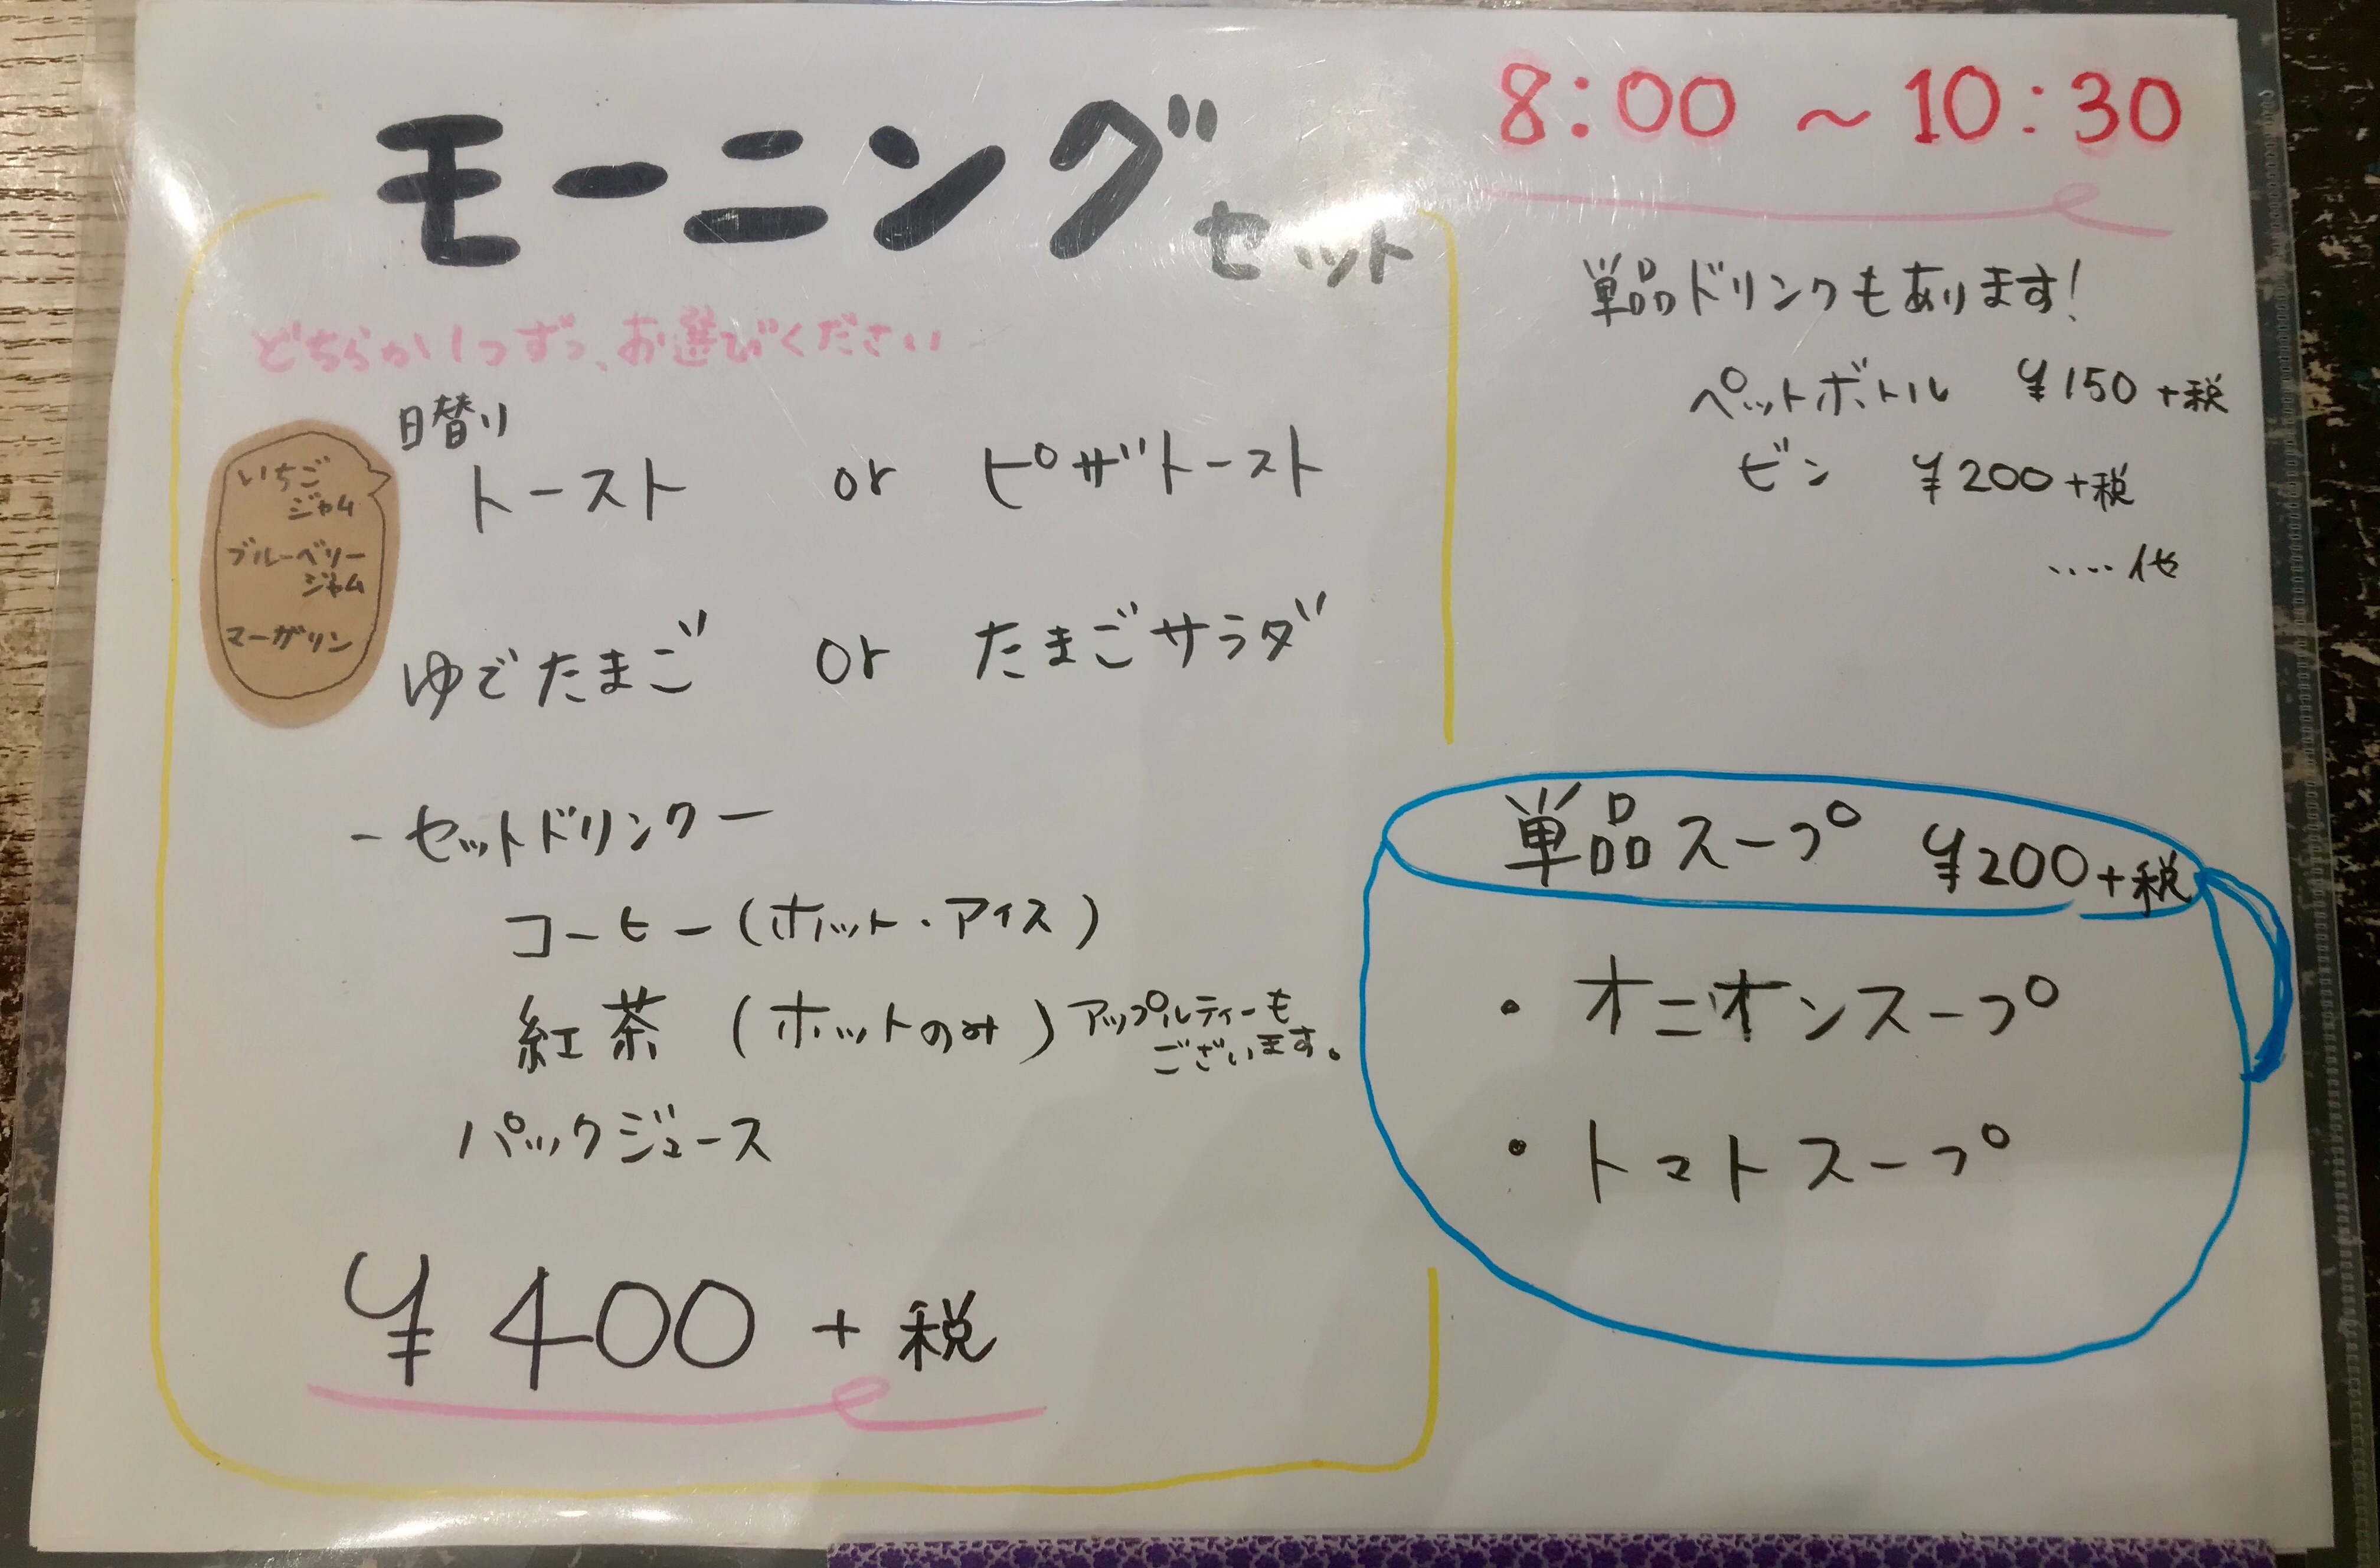 モーニングセット
どちらか1つずつ、お選びください
日替り
トースト or ピザトースト
いちご
ジャム
ブルーベリー
ジャム
マーガリン
ゆでたまご or たまごサラダ
-セットドリンクー
コーヒー(ホット・アイス)
紅茶 (ホットのみ) アップルティーも
ございます。
パックジュース
¥400+税
8:00~10:30
単品ドリンクもあります!
ペットボトル ¥150+税
ビン ¥200+税
.....他
単品スープ ¥200+税
・オニオンスープ
・トマトスープ